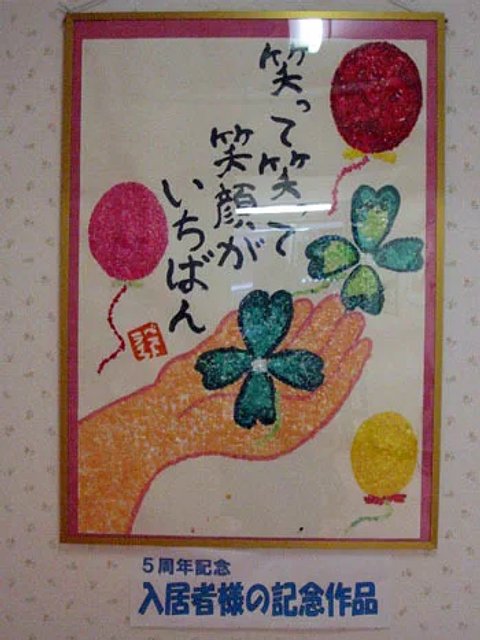 笑って笑って
笑顔が
いちばん
5周年記念
入居者様の記念作品